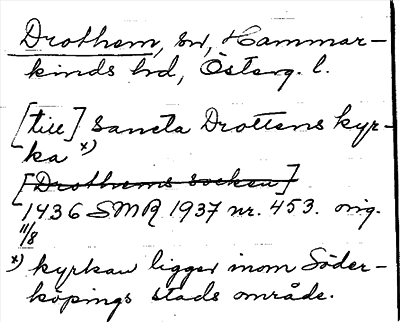 Drothem, sn, Hammar-
kinds hd, Österg. l.
[till] Sancta Drottens kyr-
ka x)
[Drothems socken]
1436 SMR 1937 nr. 453. orig.
11/8
x) kyrkan ligger inom Söder-
köpings stads område.